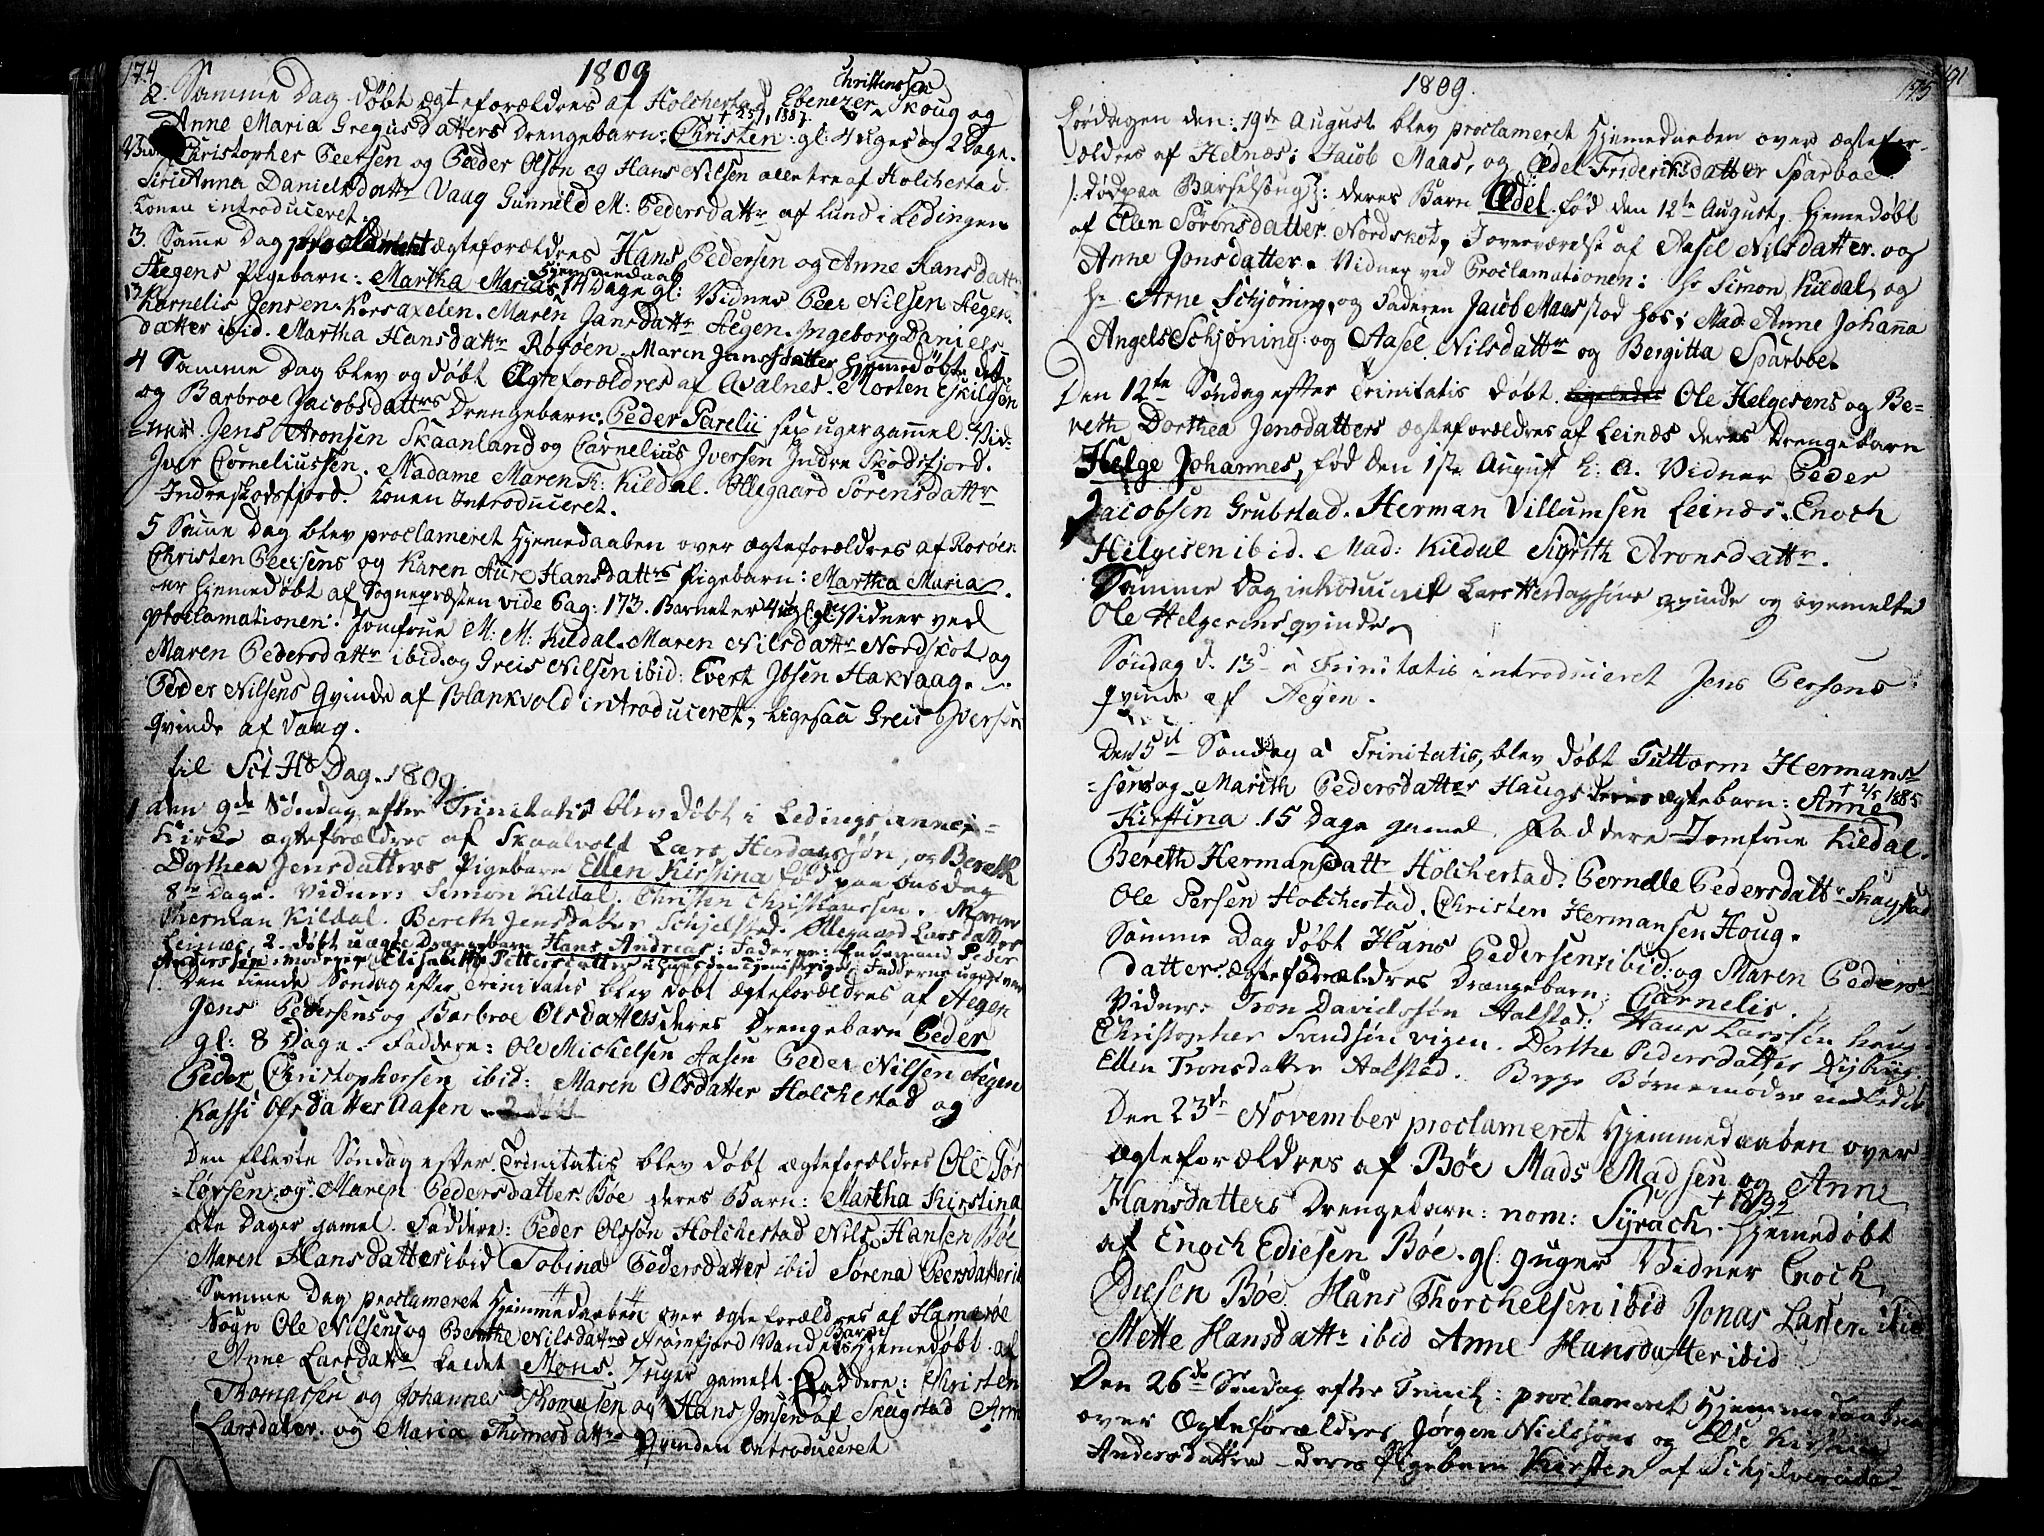 174
1809
Christenssen
2. Samme Dag døbt ægteforældres af Holchestad Ebenezer Skoug og
+ 25/1 1887.
Anne Maria Gregusdatters Drengebarn: Christen: gl: 4 uger og 2 Dage.
Christopher Peersen og Peder Olsøn og Hans Nilsen alle tre af Holchestad.
Siri Anna Danielsdattr Vaag Gunnild M: Pedersdattr af Lund i Ledingen
Konen introduceret.
3. Samme Dag proclameret ægteforældres Hans Pedersen og Anne Hansdattr
Hiemmedaab
Aegens Pigebarn: Martha Marias 14 Dage gl: Vidner Peer Nilsen Aegen.
Kornelis Jensen Korsaxelen. Maren Jansdattr Aegen. Ingeborg Daniels-
datter ibid. Martha Hansdattr Rorøen. Maren Jansdatter hjemmedøbte det.
4 Samme Dag blev og døbt Ægteforældres af Avalnes. Morten Eskilsøn
og Barbroe Jacobsdattrs Drengebarn: Peder Parelii sex uger gammel. Vid-
-ner Jens Aronsen Skaanland og Cornelius Iversen Indre Skodsfjord.
Iver Corneliussen. Madame Maren K: Kildal. Allegaard Sørensdattr
Indreskodsfjord. Konen Introduceret.
5 Samme Dag blev proclameret Hjemedaaben over ægteforældres af Rorøen
Christen Peersens og Karen Hansdattrs Pigebarn: Martha Maria.
er hjemmedøbt af Sognepræsten vide Pag: 173. Barnet er 4 ug: gl: Vidner ved
proclamationen. Jomfrue M: M: Kildal. Maren Nilsdattr Nordskot og
Maren Pedersdattr ibid. og Greis Nilsen ibid: Evert Jbsen Hakvaag.
Peder Nilsens Qvinde af Blankvold introduceret, ligesaa Greis Iversens
Qvinde af Vaag.
til Sct Hs Dag. 1809
1 den 9de Søndag efter Trinitatis blev døbt i Ledings annex-
Kirke ægteforældres af Skaalvold Lars Herdagssøn, og Bereth
Dorthea Jensdatters Pigebarn Ellen Kirstina fød paa Onsdag
8te Dage. Vidner Simon Kildal. Christen Christianssen. Maren
Herman Kildal. Bereth Jensdatter Schjelstad. Allegaard Larsdatter
Leinæs. 2. døbt uægte Drengebarn Hans Andreas: Fader er: Enkemand Peder
Anderssen; moderen Elisabeth Pettersdatter
Den tiende Søndag efter Trinitatis blev døbt ægteforældres af Aegen
Jens Pedersens og Barbroe Olsdatters deres Drengebarn Peder
gl: 8 Dage. Faddere: Ole Mickelsen Aasen Peder Nilsen Aegen
Peder Christophersen ibid: Maren Olsdatter Holchestad og
Kassi Olsdatter Aasen
Den ellevte Søndag efter Trinitatis blev døbt ægteforældres Ole Tør-
-levsen og Maren Pedersdatter Bøe deres Barn: Martha Kirstina
otte Dager gamel. Faddere: Peder Olsson Holchestad Nils Hansen Bøe
Maren Hansdatter ibid Tobina Pedersdatter ibid Sørena Peersdatter ib
Samme Dag proclameret Hjemmedaaben over ægteforældres af Hamerøe
Barn
Sogn Ole Nilsens og Berethe Nilsdatters Strømfjord Vandets Hjemedøbt af
Anne Larsdattr kaldet Mons. 7 uger gamelt. Faddere: Christen
Thomassen og Johannes Thomesen og Hans Jonsen af Skugstad Anne
Larsdater og Maria Thomesdattr Qvinden introduceret
1809.
175
191
Lørdagen den: 19de August blev proclameret Hjemedaaben over ægtefor-
ældres af Helnæs; Jacob Maas, og Ædel Frideriksdatter Sparboe
/: død paa Barselseng :/: deres Barn Ædel. fød den 12te August, hjemedøbt
af Elen Sørensdatter Nordskot, J overværelse af Aasel Nilsdatter og
Anne Jonsdatter. Vidner ved Proclamationen: Hr Simon Kildal, og
Hr Arne Schjøning, og Faderen Jacob Maas stod hos; Mad: Anne Johana
Angels Schjøning: og Aasel Nilsdattr og Bergitta Sparboe.
Den 12te Søndag efter Trinitatis døbt Ole Helgesens og Be-
reth Dorthea Jensdatters ægteforældres af Leinæs deres Drengebarn
Helge Johannes, fød den 1ste August h: a. Vidner Peder
Jacobsen Grubstad. Herman Villumsen Leinæs. Enoch
Hilgesen ibid. Mad: Kildal Sigrith Aronsdattr.
Samme Dag introduceret Lars Herdagsøns qvinde og ovemelte
Ole Helgesens qvinde.
Søndag d. 13d a Trinitatis introduceret Jens Persens
qvinde af Aegen.
Den 15d Søndag a Trinitatis, blev døbt Tuttorm Hermans-
+ 2/5 1885
-sens og Marith Pedersdatter Haugs deres ægtebarn: Anne
Kirstina 15 Dage gamel. Faddere Jomfrue Kildal.
Bereth Hermansdattr Holchestad. Pernelle Pedersdattr Skagstad
Ole Persen Holchestad. Christen Hermansen Houg.
Samme Dag døbt Hans Pedersens ibid: og Maren Peders-
datter ægteforældres Drængebarn: Cornelis.
Vidner: Tron Davidssøn Aalstad: Hans Larssen houg.
Christopher Svendsøn vigen. Dorthe Pedersdatter
Ellen Tronsdatter Aalstad. Begge Børnemødre indledet
Den 23de November proclameret Hjemmedaaben over
ægteforældres af Bøe Mads Madsen og Anne
+ 18/3 92
Hansdatters Drengebarn: nom: Syrach. Hjemedøbt
af Enoch Ediesen Bøe. gl: 9 uger Vidner Enoch
Diesen Bøe Hans Thorchelsen ibid Jonas Larsen ibid
Mette Hansdattr ibid Anne Hansdatter ibid
Den 26de Søndag efter Trinit: proclameret Hjemmedaaben
over Ægteforældres Jørgen Nielssøns og Else Kirstina
Andersdatters - deres Pigebarn Kirsten af Schjelvereide